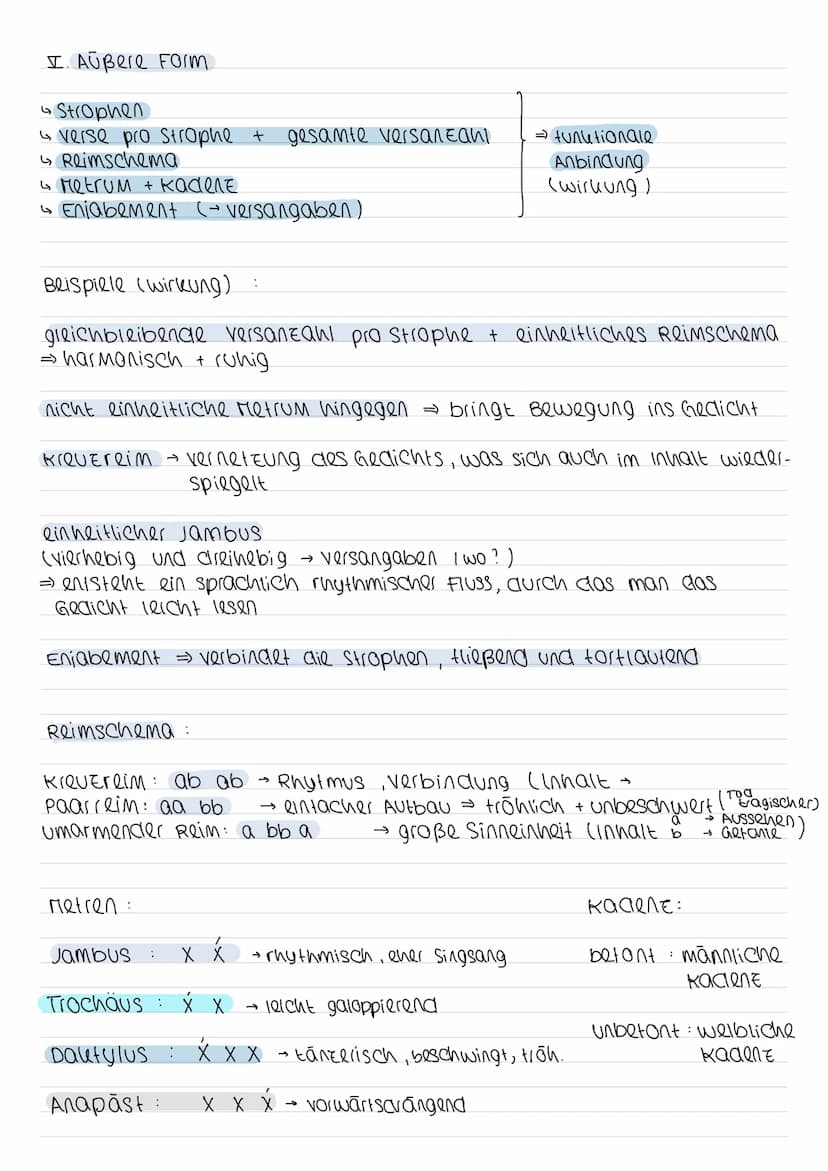 V. Äußere Form
↳ Strophen
↳ Verse pro Strophe + gesamte Versanzahl
↳ Reimschema
↳ Metrum + Kadenz
↳ Enjabement (→ Versangaben)
⇒ funktionale
Anbindung
(Wirkung)
Beispiele (Wirkung) :
gleichbleibende Versanzahl pro Strophe + einheitliches Reimschema
⇒ harmonisch + ruhig
nicht einheitliche Metrum hingegen ⇒ bringt Bewegung ins Gedicht
Kreuzreim → Vernetzung des Gedichts, was sich auch im Inhalt wieder-
spiegelt
einheitlicher Jambus
(vierhebig und dreihebig → Versangaben (wo?)
⇒ entsteht ein sprachlich rhythmischer Fluss, durch das man das
Gedicht leicht lesen
Enjabement ⇒ verbindet die Strophen, fließend und fortlaufend
Reimschema :
Kreuzreim : ab ab → Rhytmus, Verbindung (Inhalt →
Paarreim : aa bb → einfacher Aufbau ⇒ fröhlich + unbeschwert (Tod tragischer)
Umarmender Reim : a bb a → große Sinneinheit (Inhalt a → Aussehen
b → Gefahr )
Metren :
Jambus : x x́ → rhythmisch, eher Singsang
Trochäus : x́ x → leicht galoppierend
Daktylus : x́ x x → tänzerisch, beschwingt, fröh.
Anapäst : x x x́ → vorwärtsdrängend
Kadenz :
betont : männliche
Kadenz
unbetont : weibliche
Kadenz